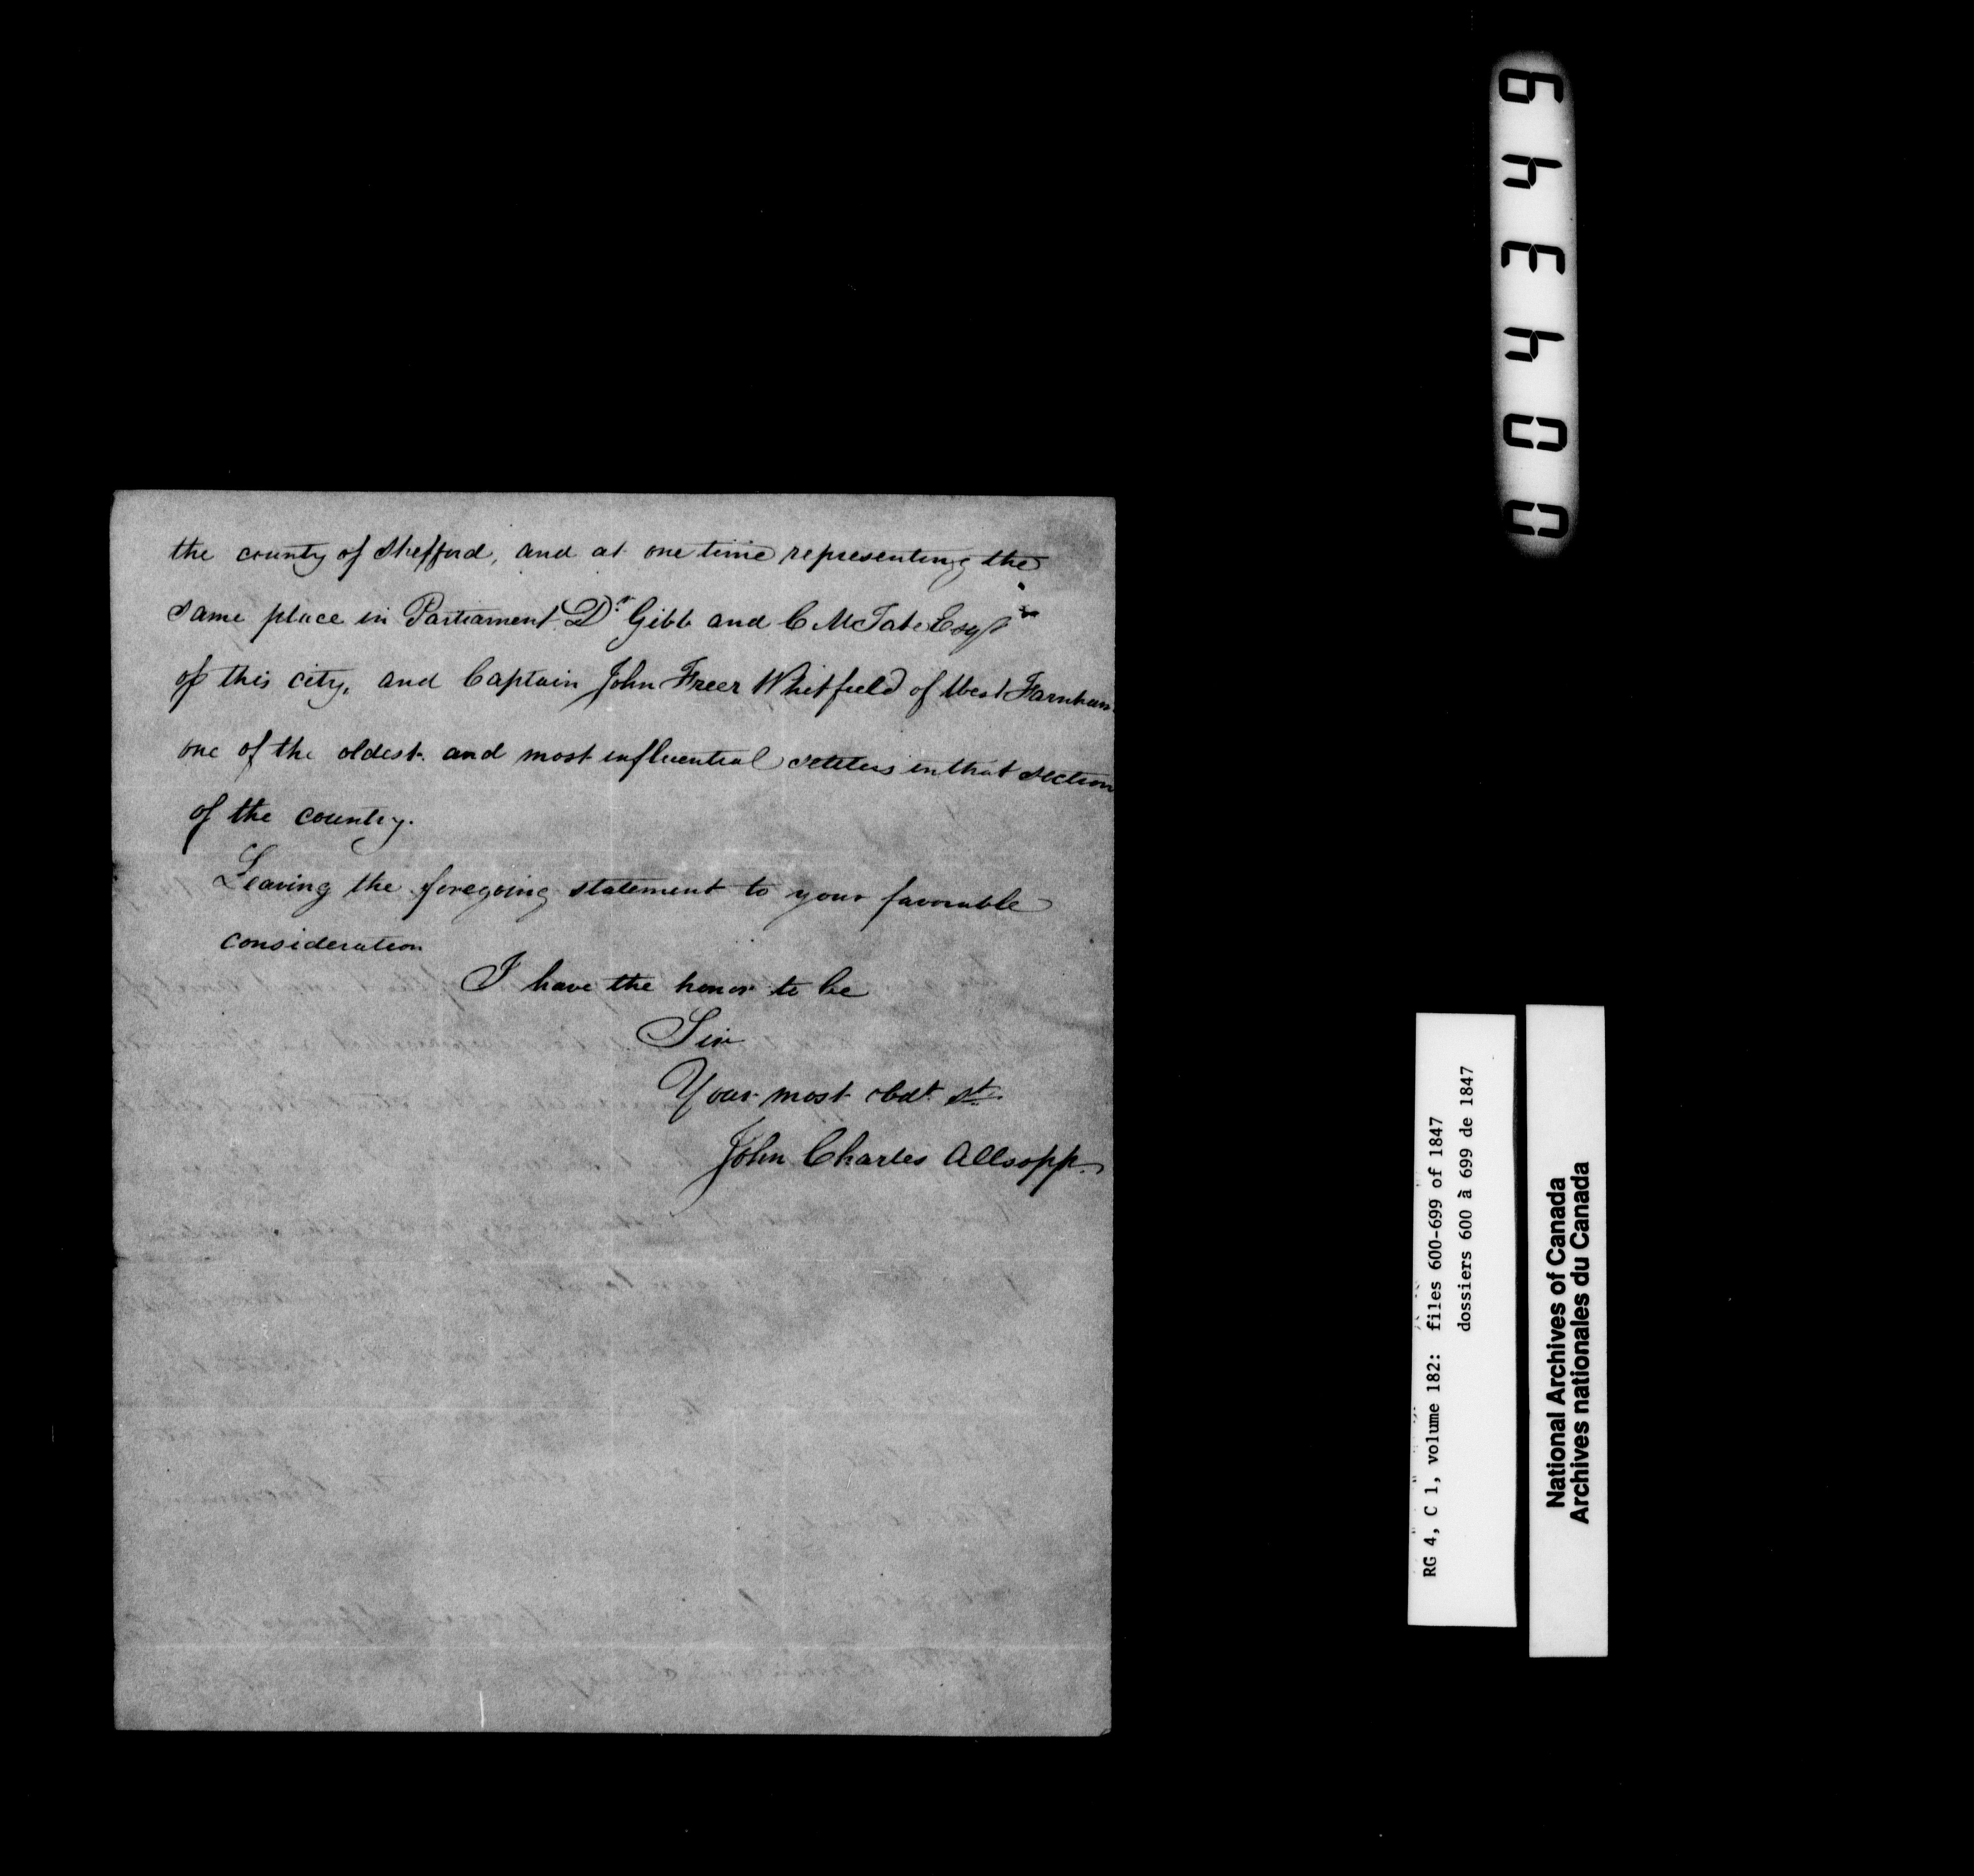 the county of Shefford, and at one time representing the
same place in Parliament. Dr. Gibb and C McTate Esqr
of this city, and Captain John Freer Whitfield of West Farnham
one of the oldest and most influential settlers in that section
of the country.
Leaving the foregoing statement to your favorable
consideration
I have the honor to be
Sir
Your most obdt. st.
John Charles Allsopp.
004349
RG 4, C 1, volume 182: files 600-699 of 1847
dossiers 600 à 699 de 1847
National Archives of Canada
Archives nationales du Canada